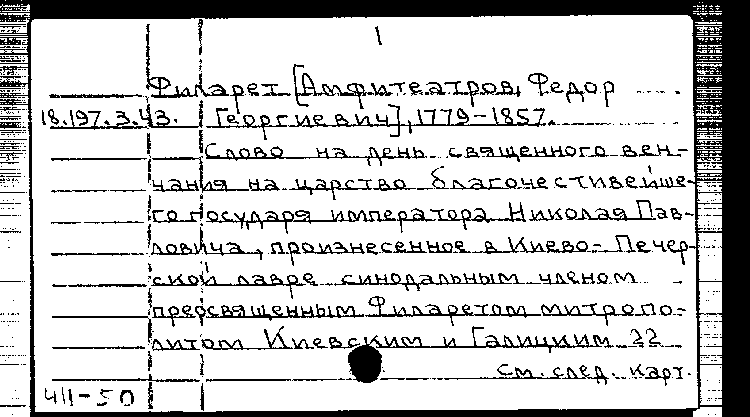 1
Филарет [Амфитеатров, Федор
18.197.3.43. Георгиевич], 1779-1857.
Слово на день священного вен-
чания на царство благочестивейше-
го государя императора Николая Пав-
ловича, произнесенное в Киево-Печер-
ской лавре синодальным членом
преосвященным Филаретом митропо-
литом Киевским и Галицким 22
см. след. карт.
411-50